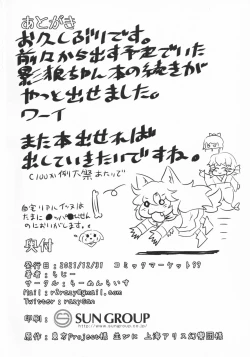 あとがき
お久しぶりです。
前々から出す予定でいた
影狼ちゃん本の続きが
やっと出せました。
ワーイ
また本出せれば
出していきたいですね。
C100か例大祭あたりで
たまに
のにおいがします。
奥付
発行日：2021/12/31 コミックマーケット99
著者：らじー
サークル：らーめんらいす
印刷：SUN GROUP
http://www.sungroup.co.jp/
原作：東方Project様 主に 上海アリス幻樂団様